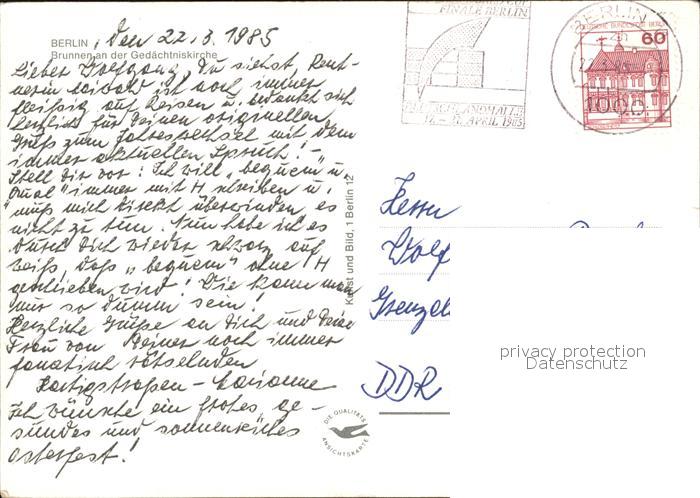 BERLIN, Den 22.3.1985
Brunnen an der Gedächtniskirche
Lieber Wolfgang, Du siehst, Rent-
nerin ist noch immer
fleißig auf Reisen u. bedankt sich
herzlich für Deinen originellen
Gruß zum Jahreswechsel mit dem
immer aktuellen Spruch! -
Stell Dir vor: Ich will „bequem" u.
„Qual" immer mit H schreiben u.
muß mich direkt überwinden, es
nicht zu tun. Nun habe ich es
durch Dich wieder schwarz auf
weiß, daß „bequem" ohne H
geschrieben wird! Wie kann man
nur so dumm sein!
Herzliche Grüße an Dich und Deine
Frau von Deiner noch immer
fanatisch rätselnden
Hartigstraßen - Marianne
Ich wünsche ein frohes, ge-
sundes und sonnenreiches
Osterfest!
Kunst und Bild, 1 Berlin 12
DIE QUALITÄTS
ANSICHTSKARTE
FINALE BERLIN
DEUTSCHLANDHALLE
APRIL 1985
BERLIN
1000
DEUTSCHE BUNDESPOST BERLIN
60
Herrn
Wolf
DDR
privacy protection
Datenschutz